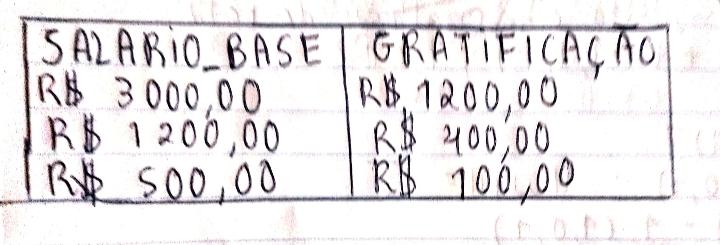 SALARIO_BASE GRATIFICAÇÃO
R$ 3000,00 R$ 1200,00
R$ 1200,00 R$ 400,00
R$ 500,00 R$ 100,00